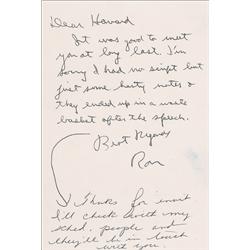 Dear Howard
It was good to meet
you at long last. I'm
sorry I had no script but
just some hasty notes &
they ended up in a waste
basket after the speech.
Best Regards
Ron
Thanks for
I'll check with my
sched. people and
they'll be in touch
with you.